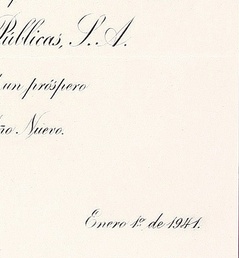 Públicas, S. A.
un próspero
ño Nuevo.
Enero 1º de 1941.